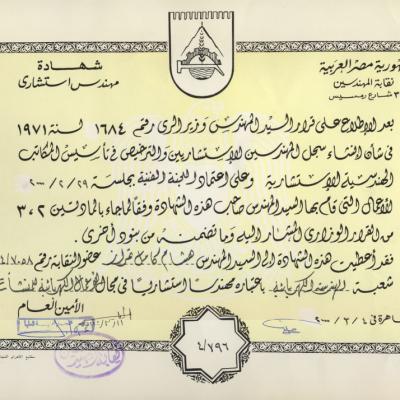 شهادة
مهندس استشارى
ـهورية مصر العربية
نقابة المهندسين
٣٠ شارع رمسيس
بعد الاطلاع على قرار السيد المهندس وزير الرى رقم ١٦٨٤ لسنة ١٩٧١
فى شأن انشاء سجل المهندسين الاستشاريين والترخيص فى تأسيس المكاتب
الهندسية الاستشارية وعلى اعتماد اللجنة الفنية بجلسة ٢٠٠٠/٢/٢٩
للأعمال التى قام بها السيد المهندس صاحب هذه الشهادة وفقا لما جاء بالمادتين ٢، ٣
من القرار الوزارى المشار اليه وما تضمنته من بنود أخرى.
فقد أعطيت هذه الشهادة الى السيد المهندس هشام كامل عضو النقابة رقم
شعبة الهندسة الكهربائية باعتباره مهندسا استشاريا فى مجال الأعمال الكهربائية للمنشآت
الأمين العام
ـاهرة فى
٤/٧٩٦